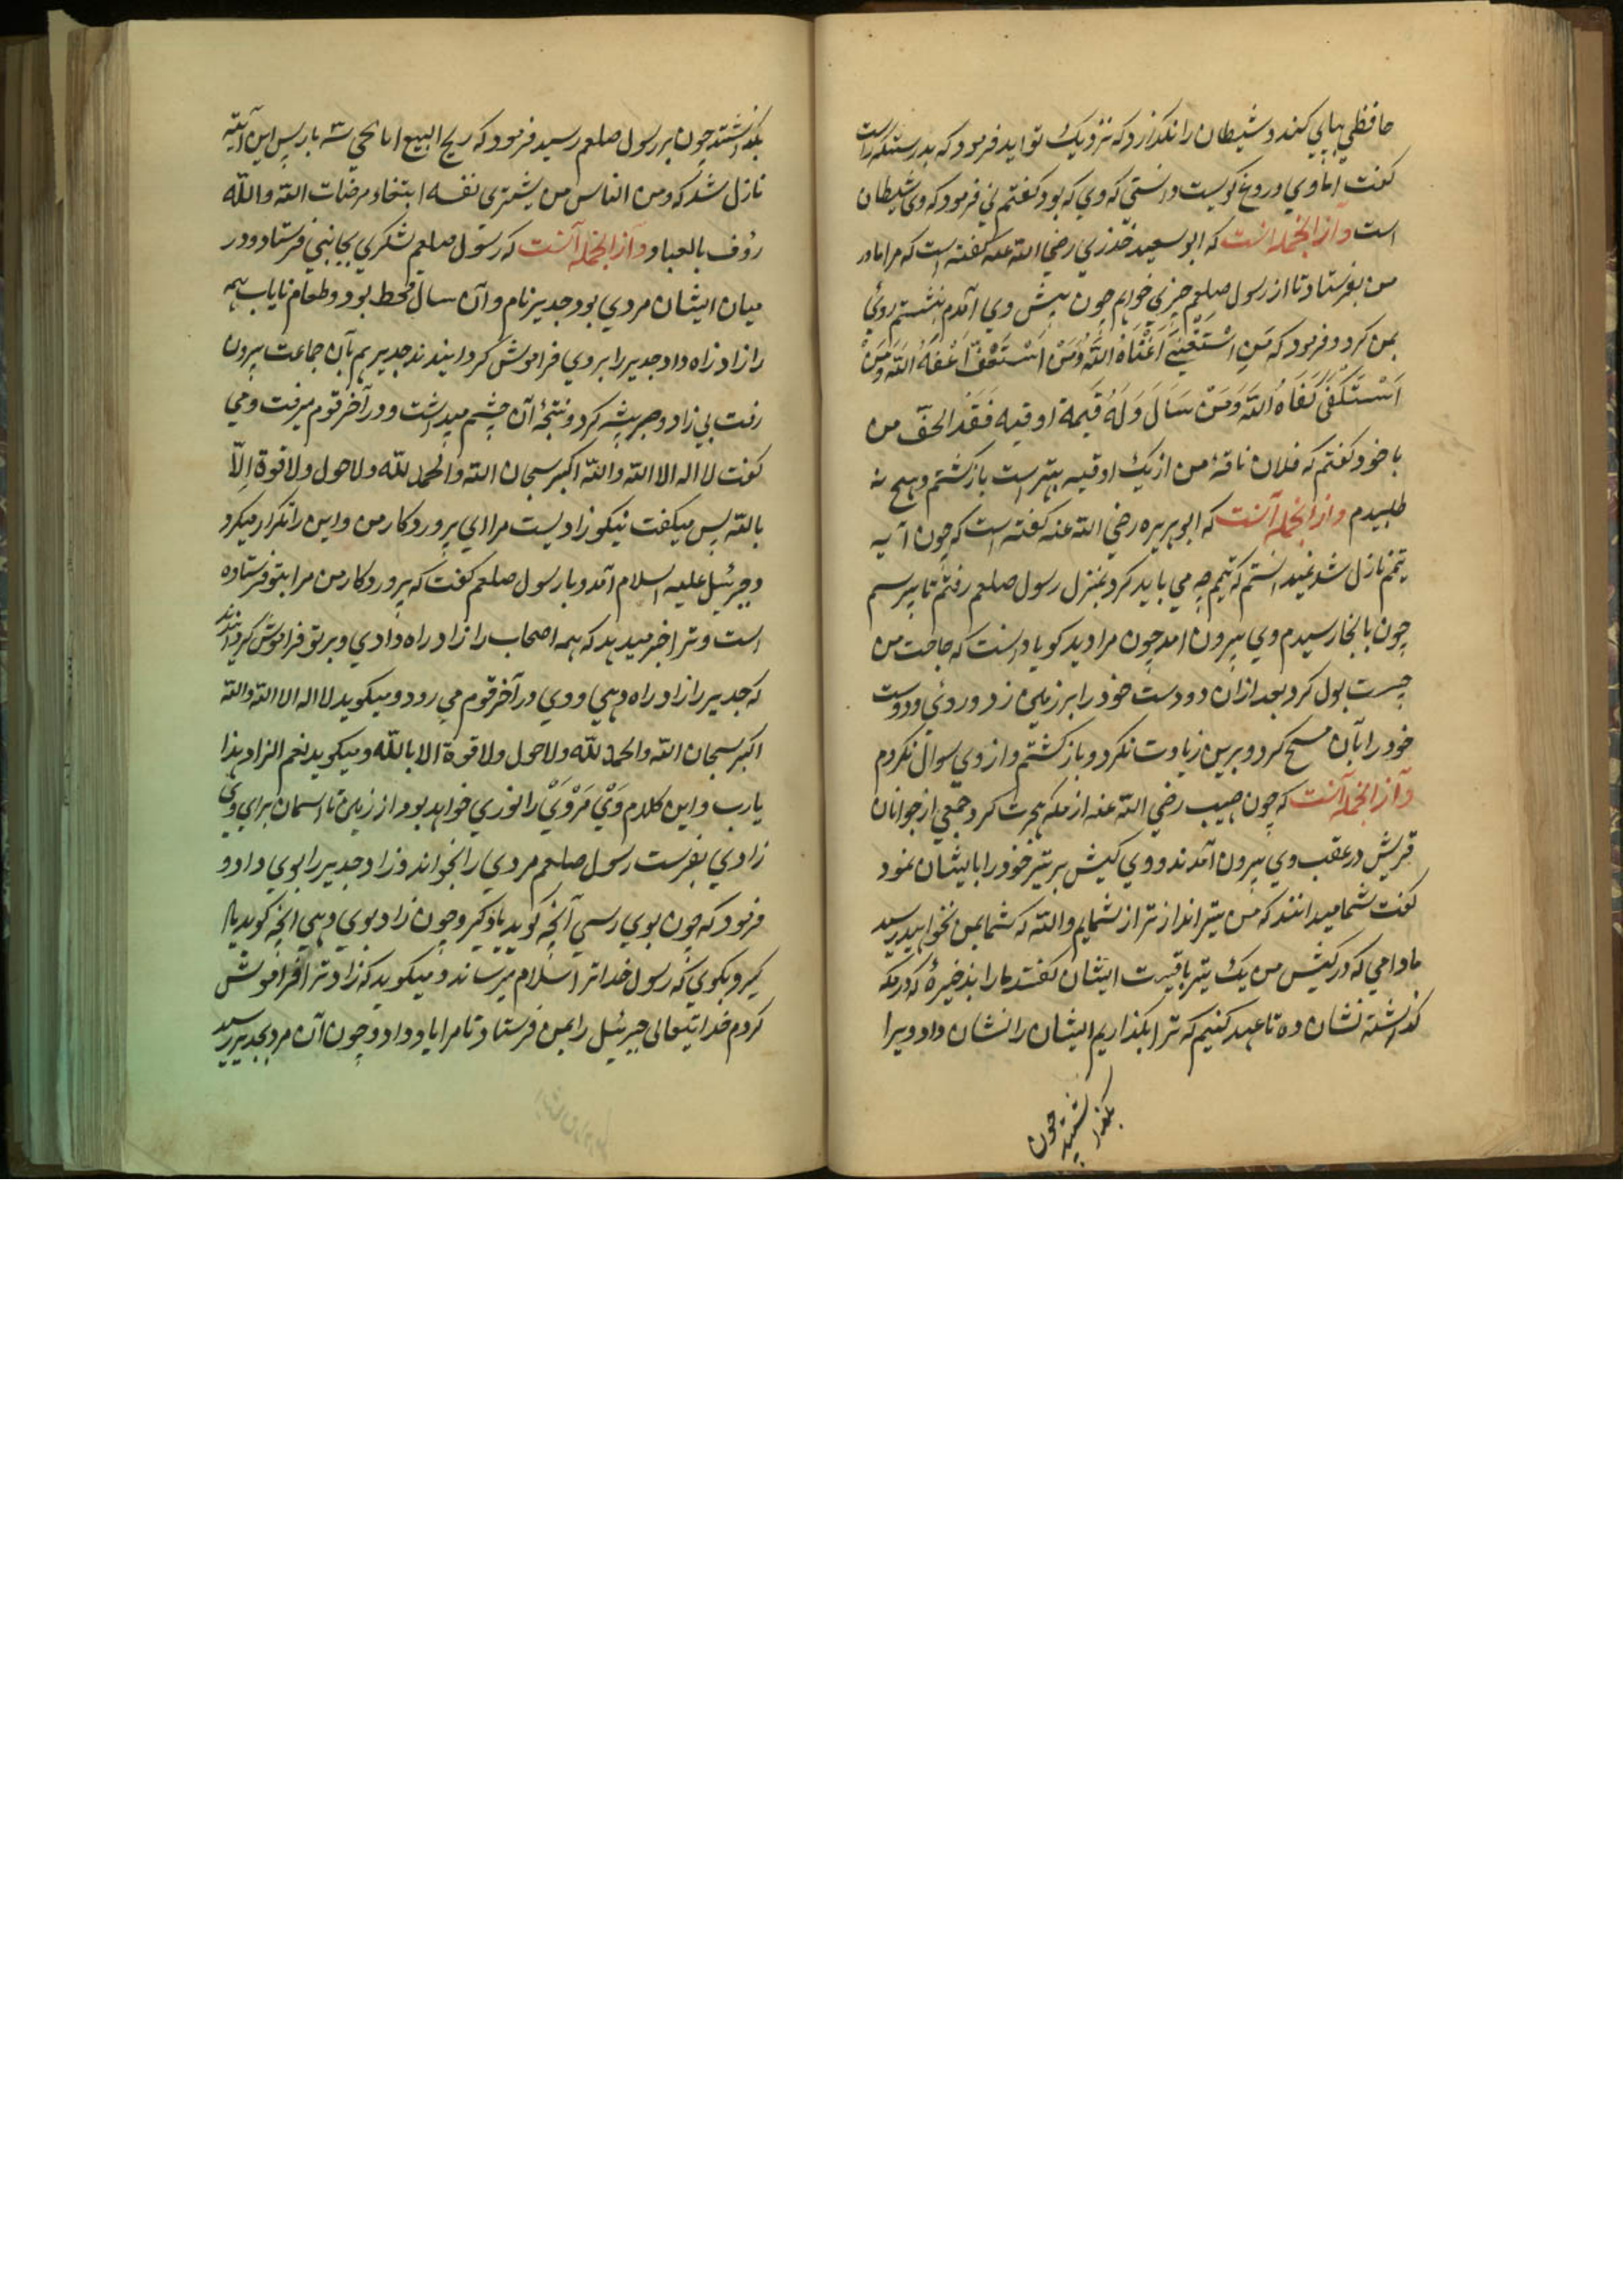 حافظی بپای کند و شیطان را نگذارد که نزدیک تو اید فرمود که بدرستیکه راست
گفت اما وی دروغ گویست دانستی که وی که بود گفتم نی فرمود که وی شیطان
است و از انجمله انست که ابو سعید خدری رضی الله عنه گفته است که مرا مادر
من بفرستاد تا از رسول صلعم چیزی خواهم چون پیش وی آمدم بنشستم روی
بمن کرد و فرمود که مَنِ اسْتَغْنیَ اَغْنَاهُ اللّهُ وَمَنْ اَسْتَعْفَّ اَعْفَهُ اللّهَ وَمَنْ
اَسْتَکْفَیَ کَفَاهُ اللّهَ وَمَنْ سَالَ وَلَهُ قِیمة اوقیه فَقَد الحفّ من
با خود گفتم که فلان ناقهٔ من از یک اوقیه بهتر است باز گشتم و هیچ نه
طلبیدم و از انجمله آنست که ابو هریره رضی الله عنه گفته است که چون آیه
تیمم نازل شد نمیدانستم که تیمم چه می باید کرد بمنزل رسول صلعم رفتم تا بپرسم
چون بانجا رسیدم وی بیرون امد چون مرا دید گویا دانست که حاجت من
چیست بول کرد بعد ازان دو دست خود را بر زمین زد و روی و دو دست
خود را بآن مسح کرد و برین زیادت نکرد و باز گشتم و از وی سوال نکردم
و از انجمله آنست که چون صهیب رضی الله عنه از مکه هجرت کرد جمعی از جوانان
قریش در عقب وی بیرون آمدند و وی کیش بر تیر خود را بایشان نمود
گفت شما میدانند که من تیر انداز تر از شمایم والله که شما بمن نخواهید رسید
مادامی که در کیش من یک تیر باقیست ایشان گفتند مارا بذخیرهٔ که در مکه
گذاشته نشان ده تا عهد کنیم که ترا بگذاریم ایشان را نشان داد و ویرا
بگذاشتند چون
بگذاشتند چون بر رسول صلعم رسید فرمود که ربح البیع ابا یحیی ۳ بار پس این آیته
نازل شد که ومن الناس من یشتری نفسه ابتغاء مرضات الله والله
رؤف بالعباد و از انجمله آنست که رسول صلعم لشکری بجانبی فرستاد و در
میان ایشان مردی بود جدیر نام و آن سال قحط بود و طعام نایاب همه
را زاد راه داد جدیر را بر وی فراموش گردانیدند جدیر هم بآن جماعت بیرون
رفت بی زاد و صبر پیشه کرد و نتیجهٔ آن چشم میداشت و در آخر قوم میرفت و می
گفت لا اله الا الله والله اکبر سبحان الله والحمد لله ولا حول ولا قوة اِلاّ
بالله پس میگفت نیکو زادیست مرا ای پروردکار من و این را تکرار میکرد
و جبرئیل علیه السلام آمد و با رسول صلعم گفت که پروردکار من مرا بتو فرستاده
است و ترا خبر میدهد که همه اصحاب را زاد راه دادی و بر تو فراموش گردانیدند
که جدیر را زاد راه دهی و وی در آخر قوم می رود و میگوید لا اله الا الله والله
اکبر سبحان الله والحمد لله ولا حول ولا قوة الا بالله و میگوید نعم الزاد هذا
یا رب و این کلام وَیْ مَرْوَیْ را نوری خواهد بود از زمین تا اسمان برای وی
زادی بفرست رسول صلعم مردی را بخواند و زاد جدیر را بوی داد و
فرمود که چون بوی رسی آنچه گوید یاد گیر و چون زاد بوی دهی انچه گوید یاد
گیر و بگوی که رسول خدا ترا سلام میرساند و میگوید که زاد ترا فراموش
کردم خدایتعالی جبرئیل را بمن فرستاد تا مرا یاد داد و چون آن مرد بجدیر رسید